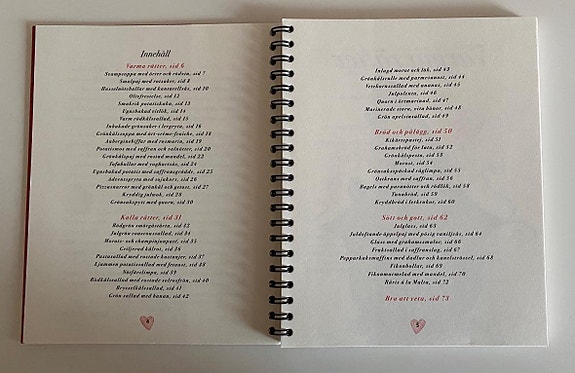 Innehåll
Varma rätter, sid 6
Svampsoppa med örter och rödvin, sid 7
Smulpaj med rotsaker, sid 8
Hasselnötsbollar med kantarellsås, sid 10
Olivfrestelse, sid 12
Smakrik potatiskaka, sid 13
Ugnsbakad vitlök, sid 14
Varm rödkålssallad, sid 15
Inbakade grönsaker i lergryta, sid 16
Grönkålssoppa med ört-crème-fraiche, sid 18
Auberginebiffar med rosmarin, sid 19
Potatismos med saffran och valnötter, sid 20
Grönkålspaj med rostad mandel, sid 22
Tofubullar med yoghurtsås, sid 24
Ugnsbakad potatis med saffransgrädde, sid 25
Adventsgryta med sojakorv, sid 26
Pizzasnurror med grönkål och getost, sid 27
Kryddig julsoß, sid 28
Grönsakspytt med quorn, sid 30
Kalla rätter, sid 31
Rödgrön smörgåstårta, sid 32
Julgrön waldorfsallad, sid 34
Morots- och championjonpaté, sid 35
Griljerad kålrot, sid 36
Pastasallad med rostade kastanjer, sid 37
Ljummen potatissallad med fetaost, sid 38
Nötfärslimpa, sid 39
Rödkålssallad med rostade solrosfrön, sid 40
Brysselkålssallad, sid 41
Grön sallad med banan, sid 42
4
Inlagd morot och lök, sid 43
Grönkålsrulle med parmesanost, sid 44
Vitekornssallad med ananas, sid 45
Julpolenta, sid 46
Quorn i örtmarinad, sid 47
Marinerade stora, vita bönor, sid 48
Grön apelsinsallad, sid 49
Bröd och pålägg, sid 50
Kikärtspastej, sid 51
Grahamsbröd för lata, sid 52
Grönkålspesto, sid 53
Morost, sid 54
Grönsaksspäckad råglimpa, sid 55
Ostkrans med saffran, sid 56
Bagels med paranötter och rödlök, sid 58
Tunnbröd, sid 59
Kryddbröd i lerkrukor, sid 60
Sött och gott, sid 62
Julglass, sid 63
Juldoftande äppelpaj med pösig vaniljsås, sid 64
Glass med grahamssmulor, sid 66
Fruktsallad i saffranslag, sid 67
Pepparkaksmuffins med dadlar och kanelströssel, sid 68
Fikonbollar, sid 69
Fikonmarmelad med mandel, sid 70
Råris à la Malta, sid 72
Bra att veta, sid 73
5